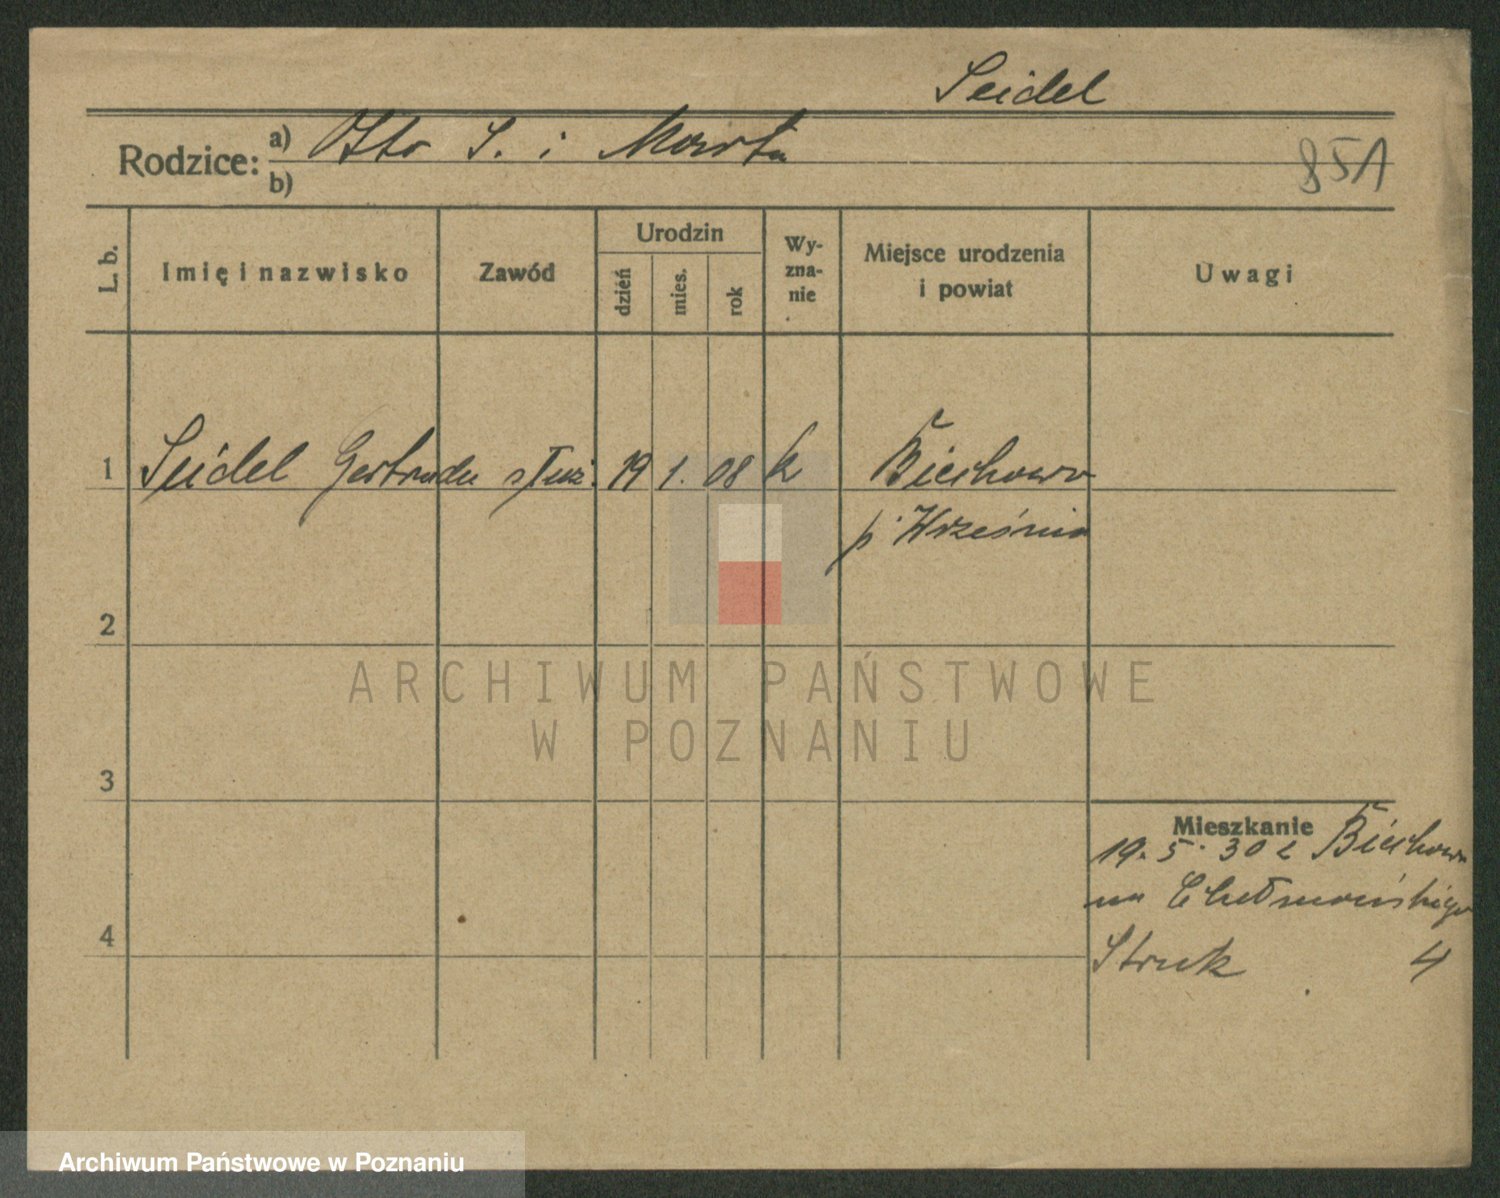 Seidel
Rodzice: a) Otto S. i Marta
b)
851
L. b.
Imię i nazwisko
Zawód
Urodzin
dzień
mies.
rok
Wy-
zna-
nie
Miejsce urodzenia
i powiat
Uwagi
1 Seidel Gertruda służ. 19 1. 08 k Biechowo
p. Września
2
3
4
Mieszkanie
19. 5. 30 z Biechowa
na Chełmońskiego
4
ARCHIWUM PAŃSTWOWE
W POZNANIU
Archiwum Państwowe w Poznaniu